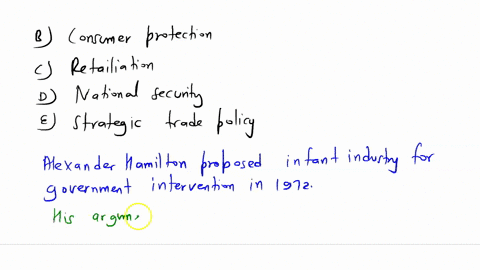 B) Consumer protection
C) Retailiation
D) National security
E) Strategic trade policy
Alexander Hamilton proposed infant industry for
government intervention in 1972.
His argum